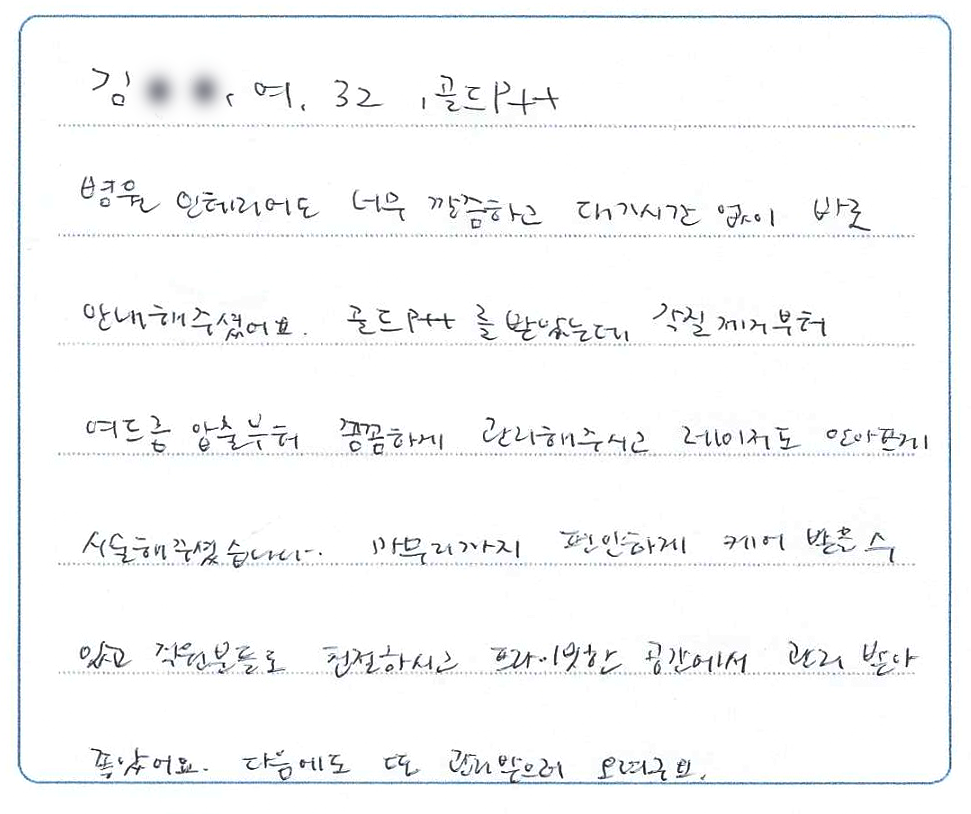 김●●, 여, 32 , 골드P++
병원 인테리어도 너무 깔끔하고 대기시간 없이 바로
안내해주셨어요. 골드P++ 를 받았는데 각질제거부터
여드름 압출부터 꼼꼼하게 관리해주시고 레이저도 안아프게
시술해주셨습니다. 마무리까지 편안하게 케어 받을 수
있고 직원분들도 친절하시고 프라이빗한 공간에서 관리 받아
좋았어요. 다음에도 또 관리받으러 오려구요.